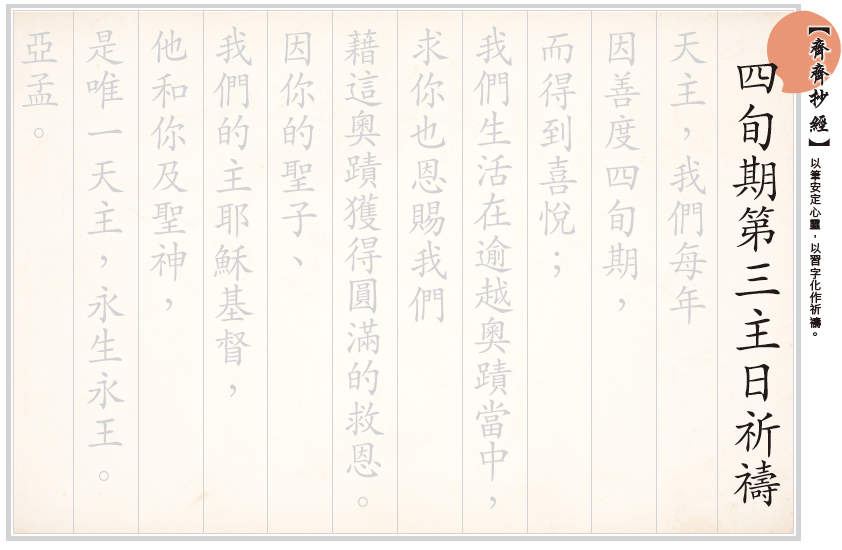 【齊齊抄經】以筆安定心靈，以習字化作祈禱。
四旬期第三主日祈禱
天主，我們每年
因善度四旬期，
而得到喜悅；
我們生活在逾越奧蹟當中，
求你也恩賜我們
藉這奧蹟獲得圓滿的救恩。
因你的聖子、
我們的主耶穌基督，
他和你及聖神，
是唯一天主，永生永王。
亞孟。